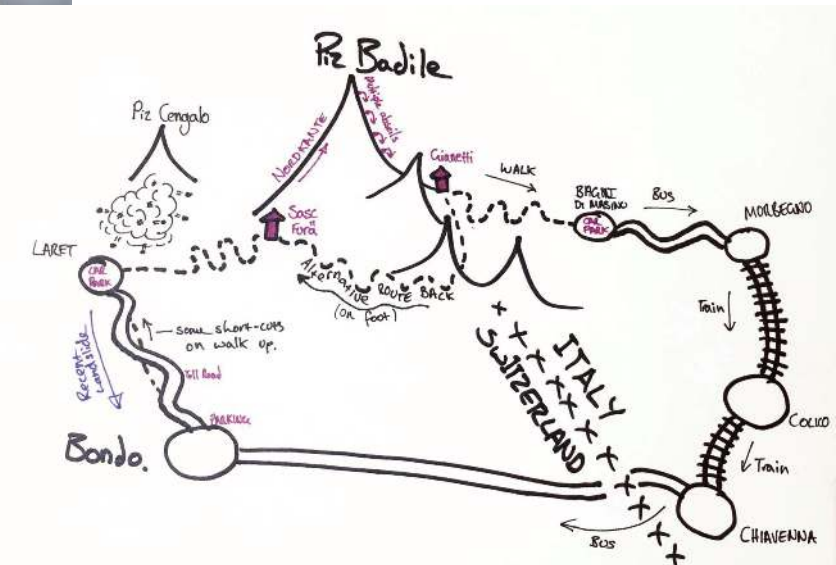 Piz Badile
Piz Cengalo
NORDKANTE
Multiple abseils
Giannetti
WALK
BAGNI
DI MASINO
CAR
PARK
BUS
MORBEGNO
Sasc
Forà
LARET
CAR
PARK
Alternative ROUTE BACK
(on foot)
Train
some short-cuts
on walk up.
Recent
Landslide
Toll Road
PARKING
Bondo.
ITALY
SWITZERLAND
COLICO
Train
CHIAVENNA
BUS